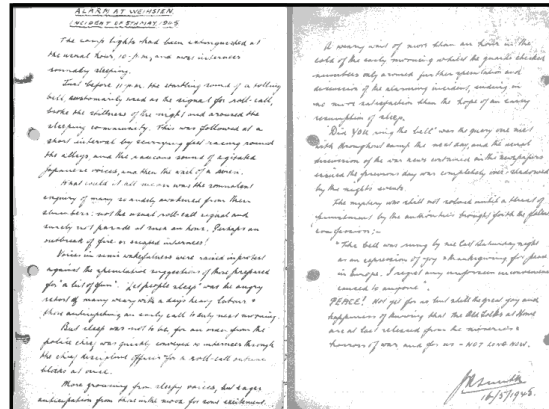 ALARM AT WEIHSIEN
INCIDENT OF 5TH MAY, 1945
The camp lights had been extinguished at
the usual hour, 10 p.m, and most internees
soundly sleeping.
Just before 11 p.m. the startling sound of a tolling
bell, customarily used as the signal for roll-call,
broke the stillness of the night and aroused the
sleeping community. This was followed at a
short interval by scurrying feet racing round
the alleys, and the raucous sound of agitated
Japanese voices, and then the wail of a siren.
What could it all mean was the somnolent
enquiry of many so rudely awakened from their
slumbers: not the usual roll-call signal and
surely not parade at such an hour. Perhaps an
outbreak of fire or escaped internees!
Voices in semi wakefulness were raised in protest
against the speculative suggestions of those prepared
for "a bit of fun". "Let people sleep" was the angry
retort of many weary with a day's heavy labour &
those anticipating an early call to duty next morning.
But sleep was not to be for an order from the
police chief was quickly conveyed to internees through
the discipline officer for a roll-call outside
blocks at once.
More grousing from sleepy voices, but eager
anticipation from those in the mood for some excitement.
A weary wait of more than an hour in the
cold of the early morning whilst the guards checked
numbers only aroused further speculation and
discussion of the alarming incident, ending in
no more satisfaction than the hope of an early
resumption of sleep.
"Did YOU ring the bell" was the query one met
with throughout camp the next day, and the usual
discussion of the war news contained in the newspapers
issued the previous day was completely over-shadowed
by the night's events.
The mystery was still not solved until a threat of
punishment by the authorities brought forth the following
confession;-
"The bell was rung by me last Saturday night
as an expression of joy & thanksgiving for peace
in Europe. I regret any unforeseen inconvenience
caused to anyone".
PEACE! Not yet for us but still the great joy and
happiness of knowing that the Old Folks at Home
are at last released from the miseries &
horrors of war and for us - NOT LONG NOW.
16/5/1945.